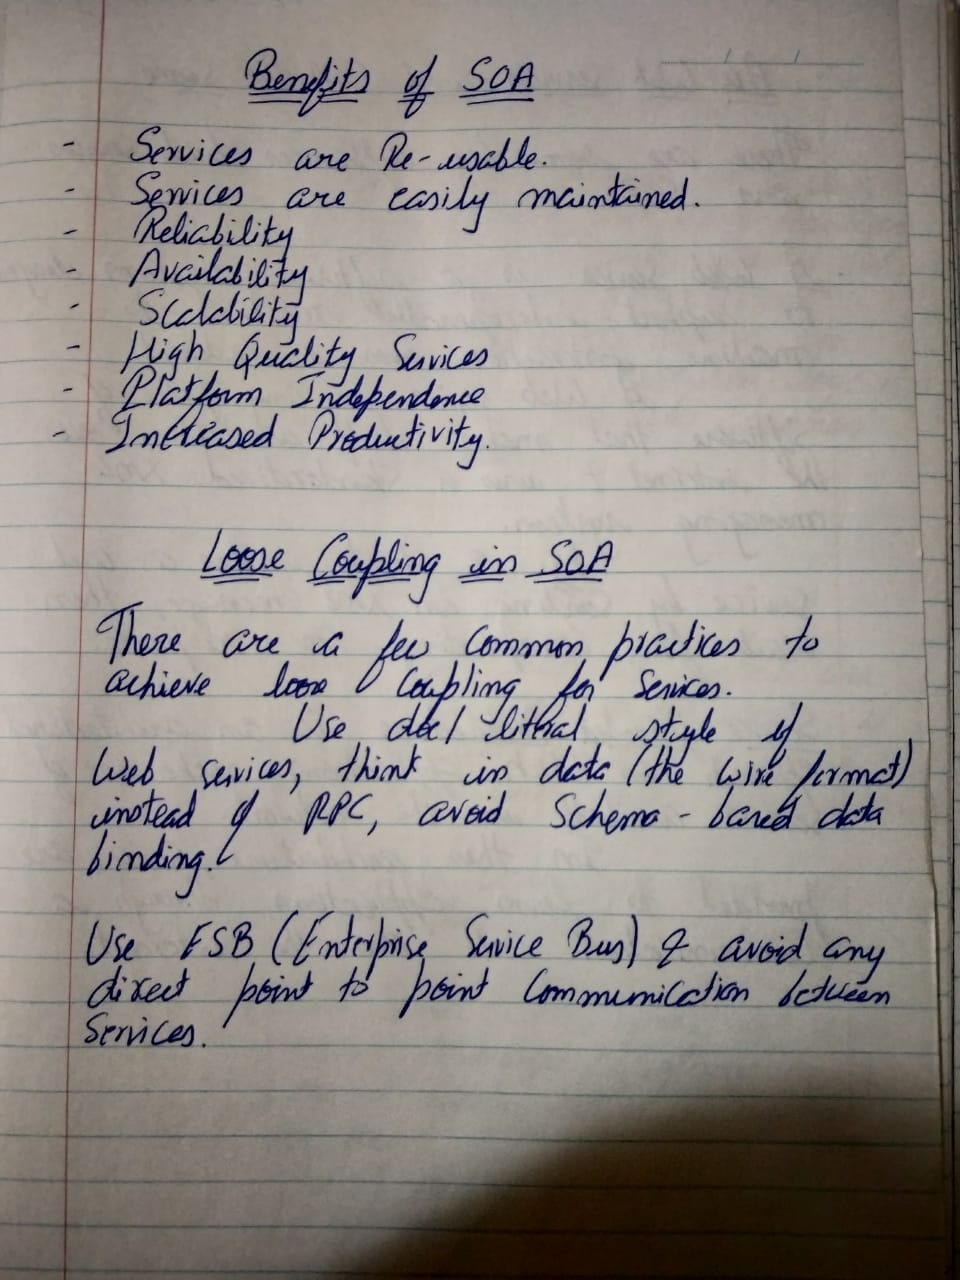 Benefits of SOA
- Services are Re-usable.
- Services are easily maintained.
- Reliability
- Availability
- Scalability
- High Quality Services
- Platform Independence
- Increased Productivity.
Loose Coupling in SOA
There are a few Common practices to
achieve loose Coupling for Services.
Use doc/literal style of
Web services, think in data (the wire format)
instead of RPC, avoid Schema-based data
binding.
Use ESB (Enterprise Service Bus) & avoid any
direct point to point Communication between
Services.